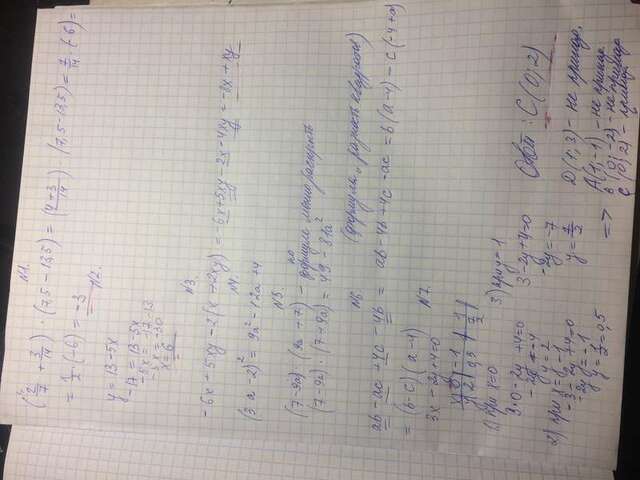 №1.
(2/7 + 3/14) · (7,5 - 13,5) = (4+3/14) · (7,5 - 13,5) = 7/14 · (-6) =
= 1/2 · (-6) = -3
№2.
y = 13 - 5x
-17 = 13 - 5x
-5x = -17-13
-5x = -30
x = 6
№3
-6x + 5xy - 2(x + 2xy) = -6x + 5xy - 2x - 4xy = -8x + xy
№4.
(3a - 2)² = 9a² - 12a + 4
№5.
(7-9a) · (9a + 7) - по формуле можно раскрыть
(7-9a) · (7+9a) = 49 - 81a²
(формула „разность квадратов)
№6
ab - ac + 4c - 4b = ab - 4b + 4c - ac = b(a-4) - c(-4+a)
= (b-c)(a-4)
№7.
3x - 2y + 4 = 0
x | 0 | -1 | 1
y | 2 | 0,5 | 7/2
1) при x=0
3·0 - 2y + 4=0
-2y = -4
y = 2
2) при x = -1
-3 - 2y + 4=0
-2y = -1
y = 1/2 = 0,5
3) при = 1
3 - 2y + 4=0
-2y = -7
y = 7/2
=>
Ответ: C (0; 2)
D (1; 3) - не принад.
A (1; -1) - не принад.
B (0; -2) - не принад
C (0; 2) - принад.